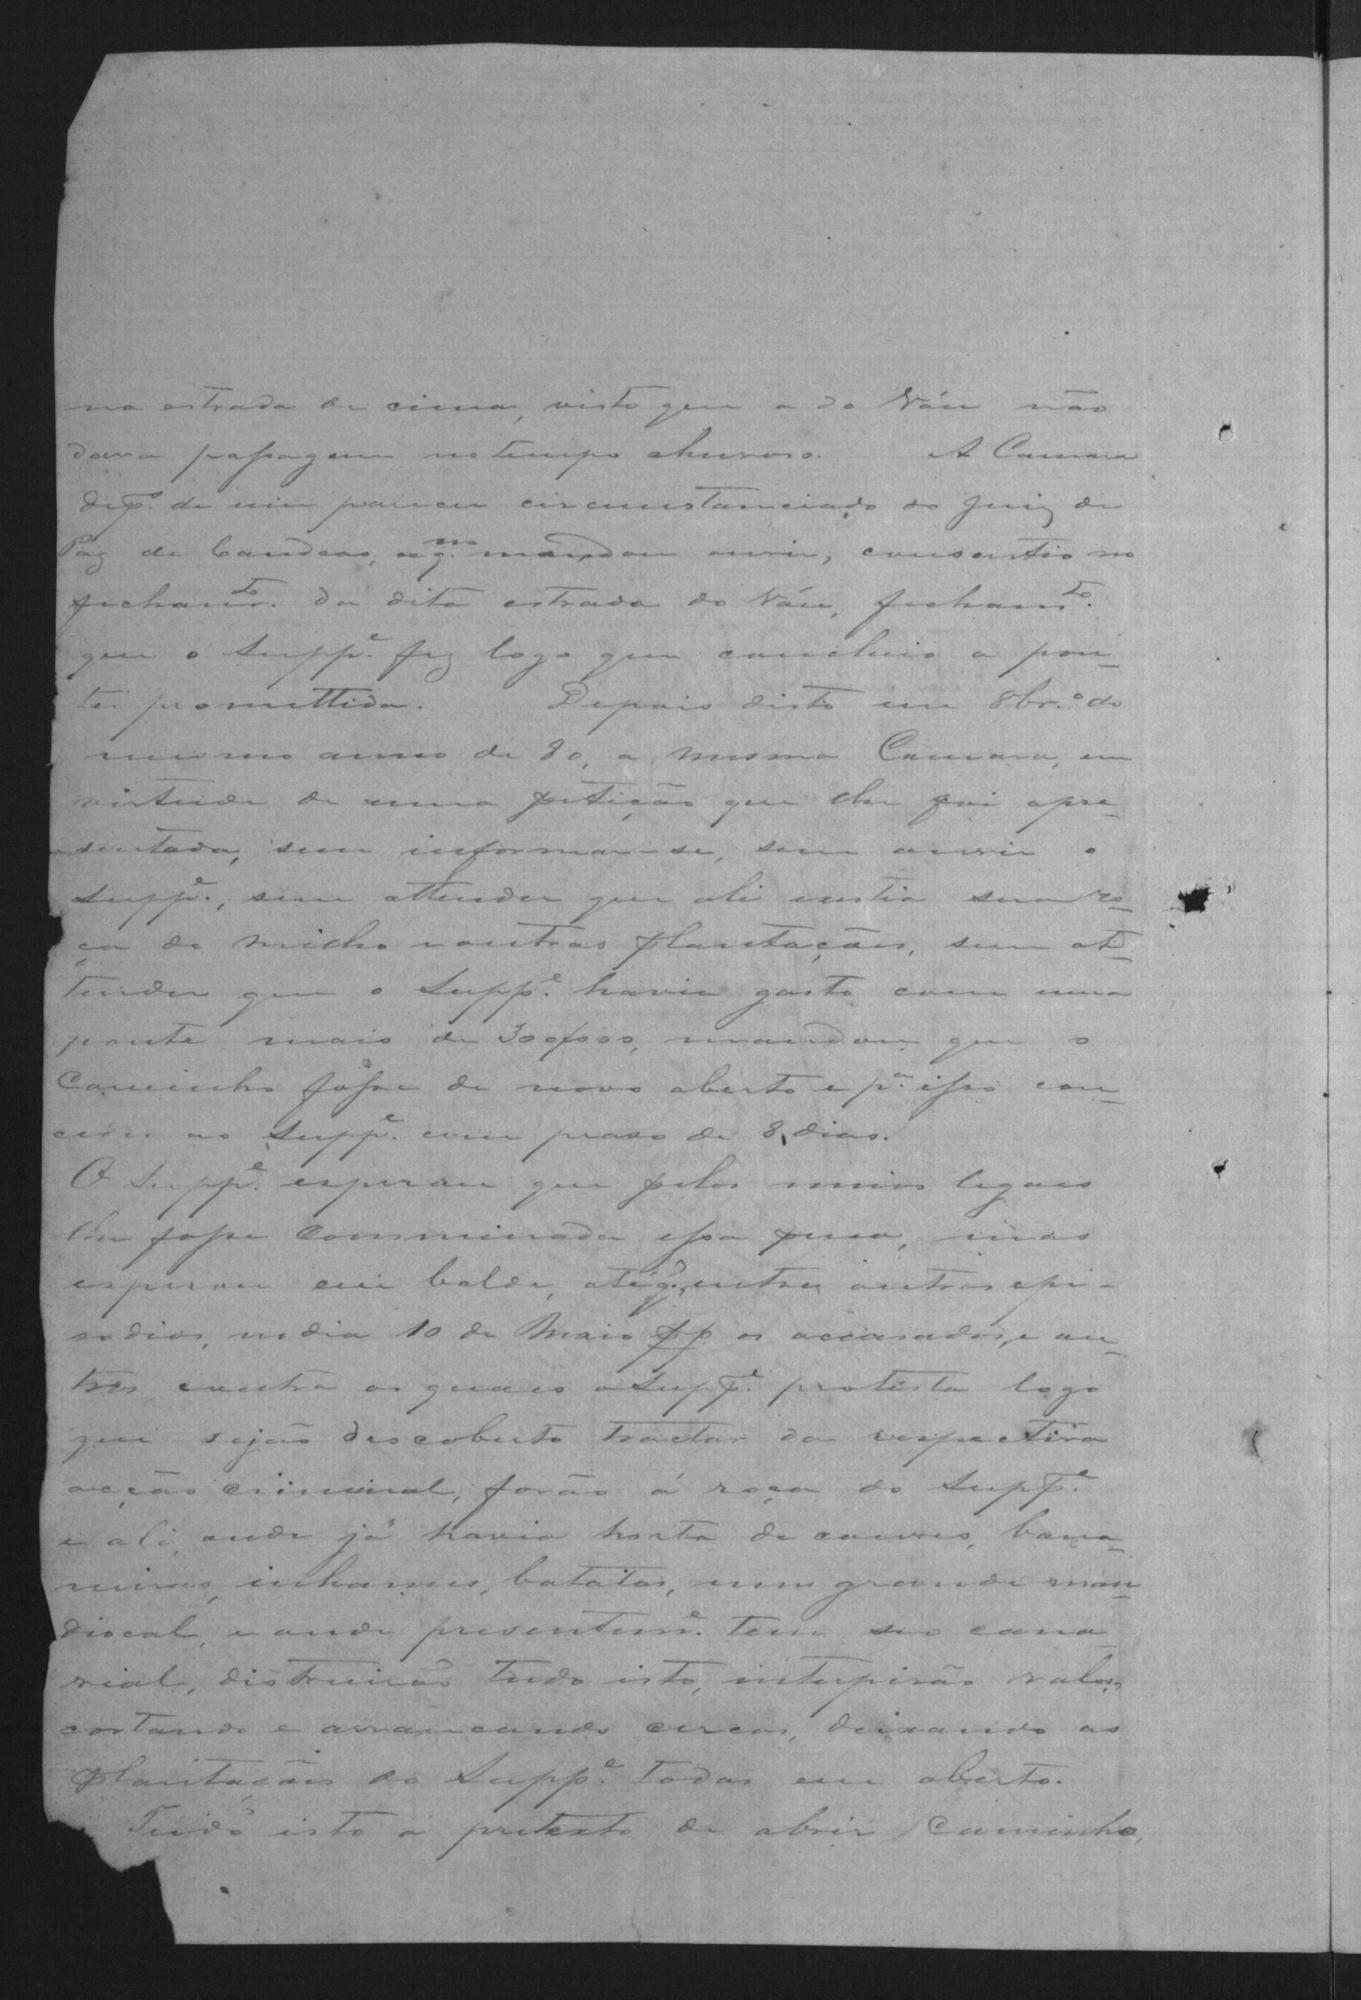 na estrada de cima, visto que a do Váu não
dava passagem no tempo chuvoso. A Camara
dep.s de um parecer circumstanciado do Juiz de
Paz de Candeas, a q.m mandou ouvir, consentio no
fecham.to da dita estrada do Váu, fecham.to
que o Supp.e fez logo que concluio a pon-
te promettida. Depois disto em 8br.o do
mesmo anno de 80, a mesma Camara, em
virtude de uma petição que lhe foi apre-
sentada, sem informar-se, sem ouvir o
Supp.e, sem attender que ali existia sua ro-
ça de milho e outras plantações, sem at-
tender que o Supp.e havia gasto com uma
ponte mais de 300$000, mandou que o
Caminho fosse de novo aberto e p.a isso con-
cedeu ao Supp.e com praso de 8 dias.
O Supp.e esperou que pelos meios legaes
lhe fosse comminada essa pena, mas
esperou em balde, até q. entre outros epi-
sodios, no dia 10 de Maio pp os accusados, e ou-
tros contra os quaes o Supp.e protesta logo
que sejão descoberto tractar da respectiva
acção criminal, forão á roça do Supp.e
e ali, onde já havia horta de couves, bana-
neiras, inhames, batatas, um grande man-
diocal, e onde presentem.e tem seo cana-
vial, distruirão tudo isto, intupirão valos,
cortando e arrancando cercas, deixando as
plantações do Supp.e todas em aberto.
Tudo isto a pretexto de abrir Caminho,